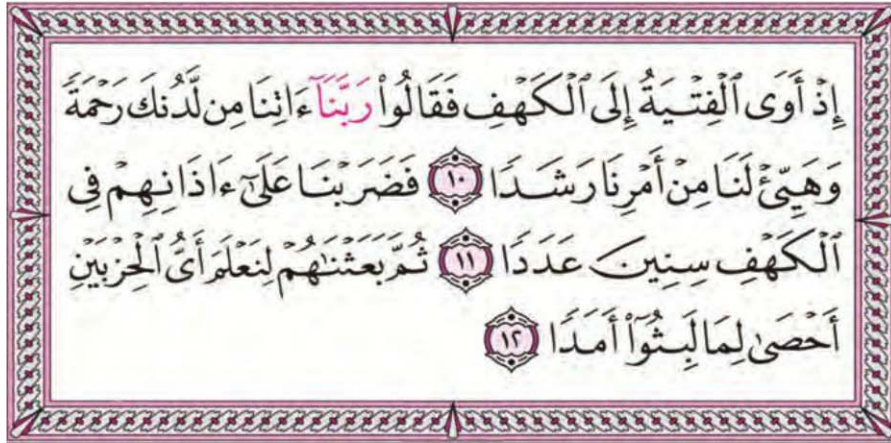 إِذْ أَوَى ٱلْفِتْيَةُ إِلَى ٱلْكَهْفِ فَقَالُوا۟ رَبَّنَآ ءَاتِنَا مِن لَّدُنكَ رَحْمَةً
وَهَيِّئْ لَنَا مِنْ أَمْرِنَا رَشَدًا ١٠ فَضَرَبْنَا عَلَىٰٓ ءَاذَانِهِمْ فِى
ٱلْكَهْفِ سِنِينَ عَدَدًا ١١ ثُمَّ بَعَثْنَٰهُمْ لِنَعْلَمَ أَىُّ ٱلْحِزْبَيْنِ
أَحْصَىٰ لِمَا لَبِثُوٓا۟ أَمَدًا ١٢